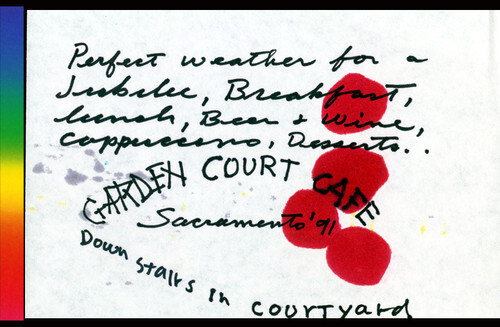 Perfect weather for a
Jubilee, Breakfast,
lunch, Beer & wine,
cappuccino, Desserts..
GARDEN COURT CAFE
Sacramento '91
Down stairs in courtyard